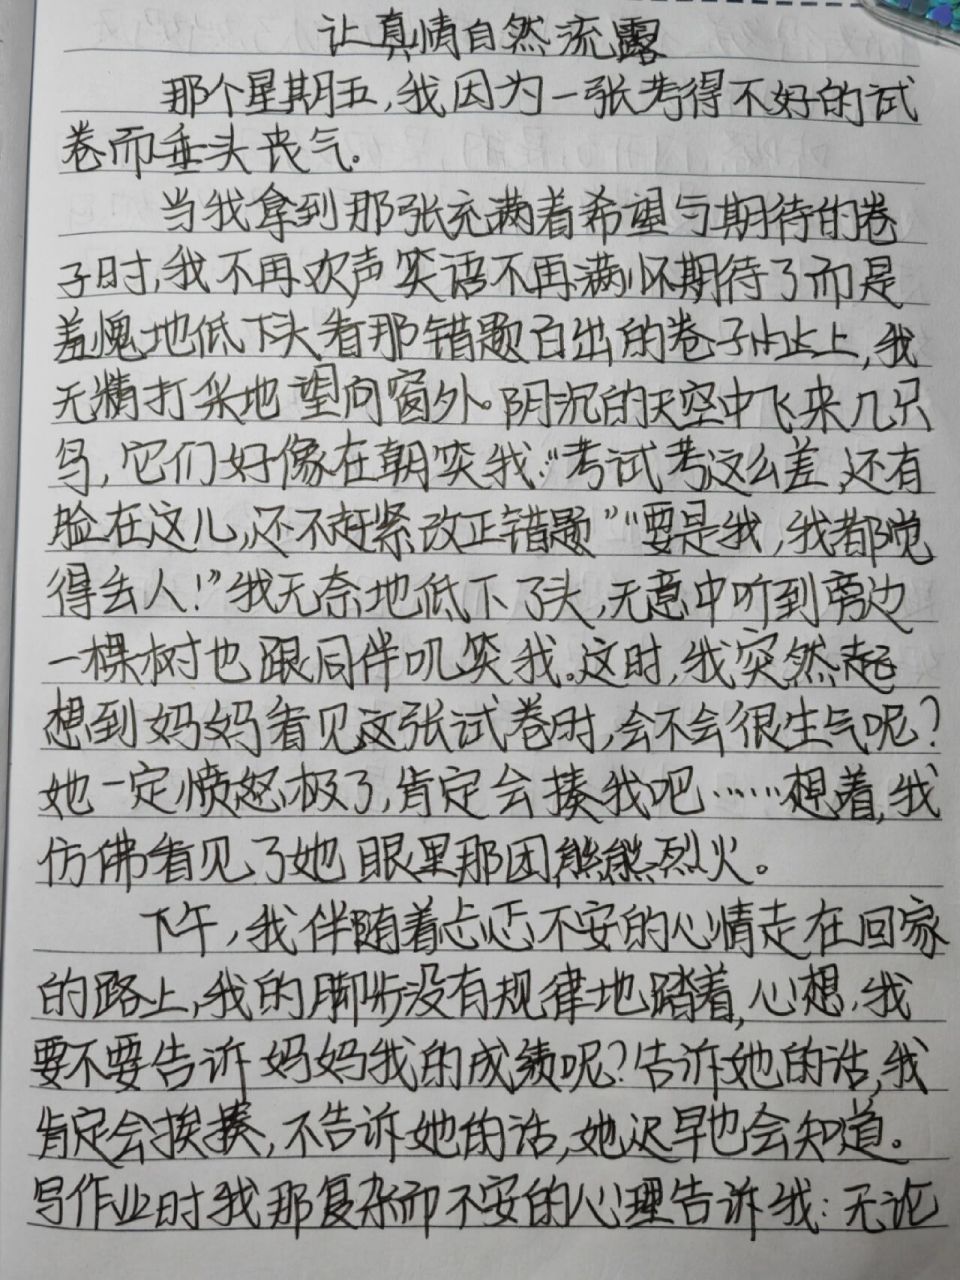 让真情自然流露
那个星期五,我因为一张考得不好的试
卷而垂头丧气.
当我拿到那张充满着希望与期待的卷
子时,我不再欢声笑语不再满怀期待了而是
羞愧地低下头看那错题百出的卷子上,我
无精打采地望向窗外。阴沉的天空中飞来几只
鸟,它们好像在朝笑我:“考试考这么差,还有
脸在这儿,还不赶紧改正错题”“要是我,我都觉
得丢人!”我无奈地低下了头,无意中听到旁边
一棵树也跟同伴叽笑我。这时,我突然起
想到妈妈看见这张试卷时,会不会很生气呢?
她一定愤怒极了,肯定会揍我吧……想着,我
仿佛看见了她眼里那团熊熊烈火。
下午,我伴随着忐忑不安的心情走在回家
的路上,我的脚步没有规律地踏着,心想,我
要不要告诉妈妈我的成绩呢?告诉她的话,我
肯定会挨揍,不告诉她的话,她迟早也会知道。
写作业时我那复杂而不安的心理告诉我:无论